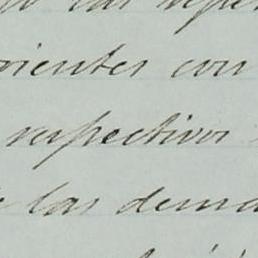 las
rientes con
respectivos
las dema